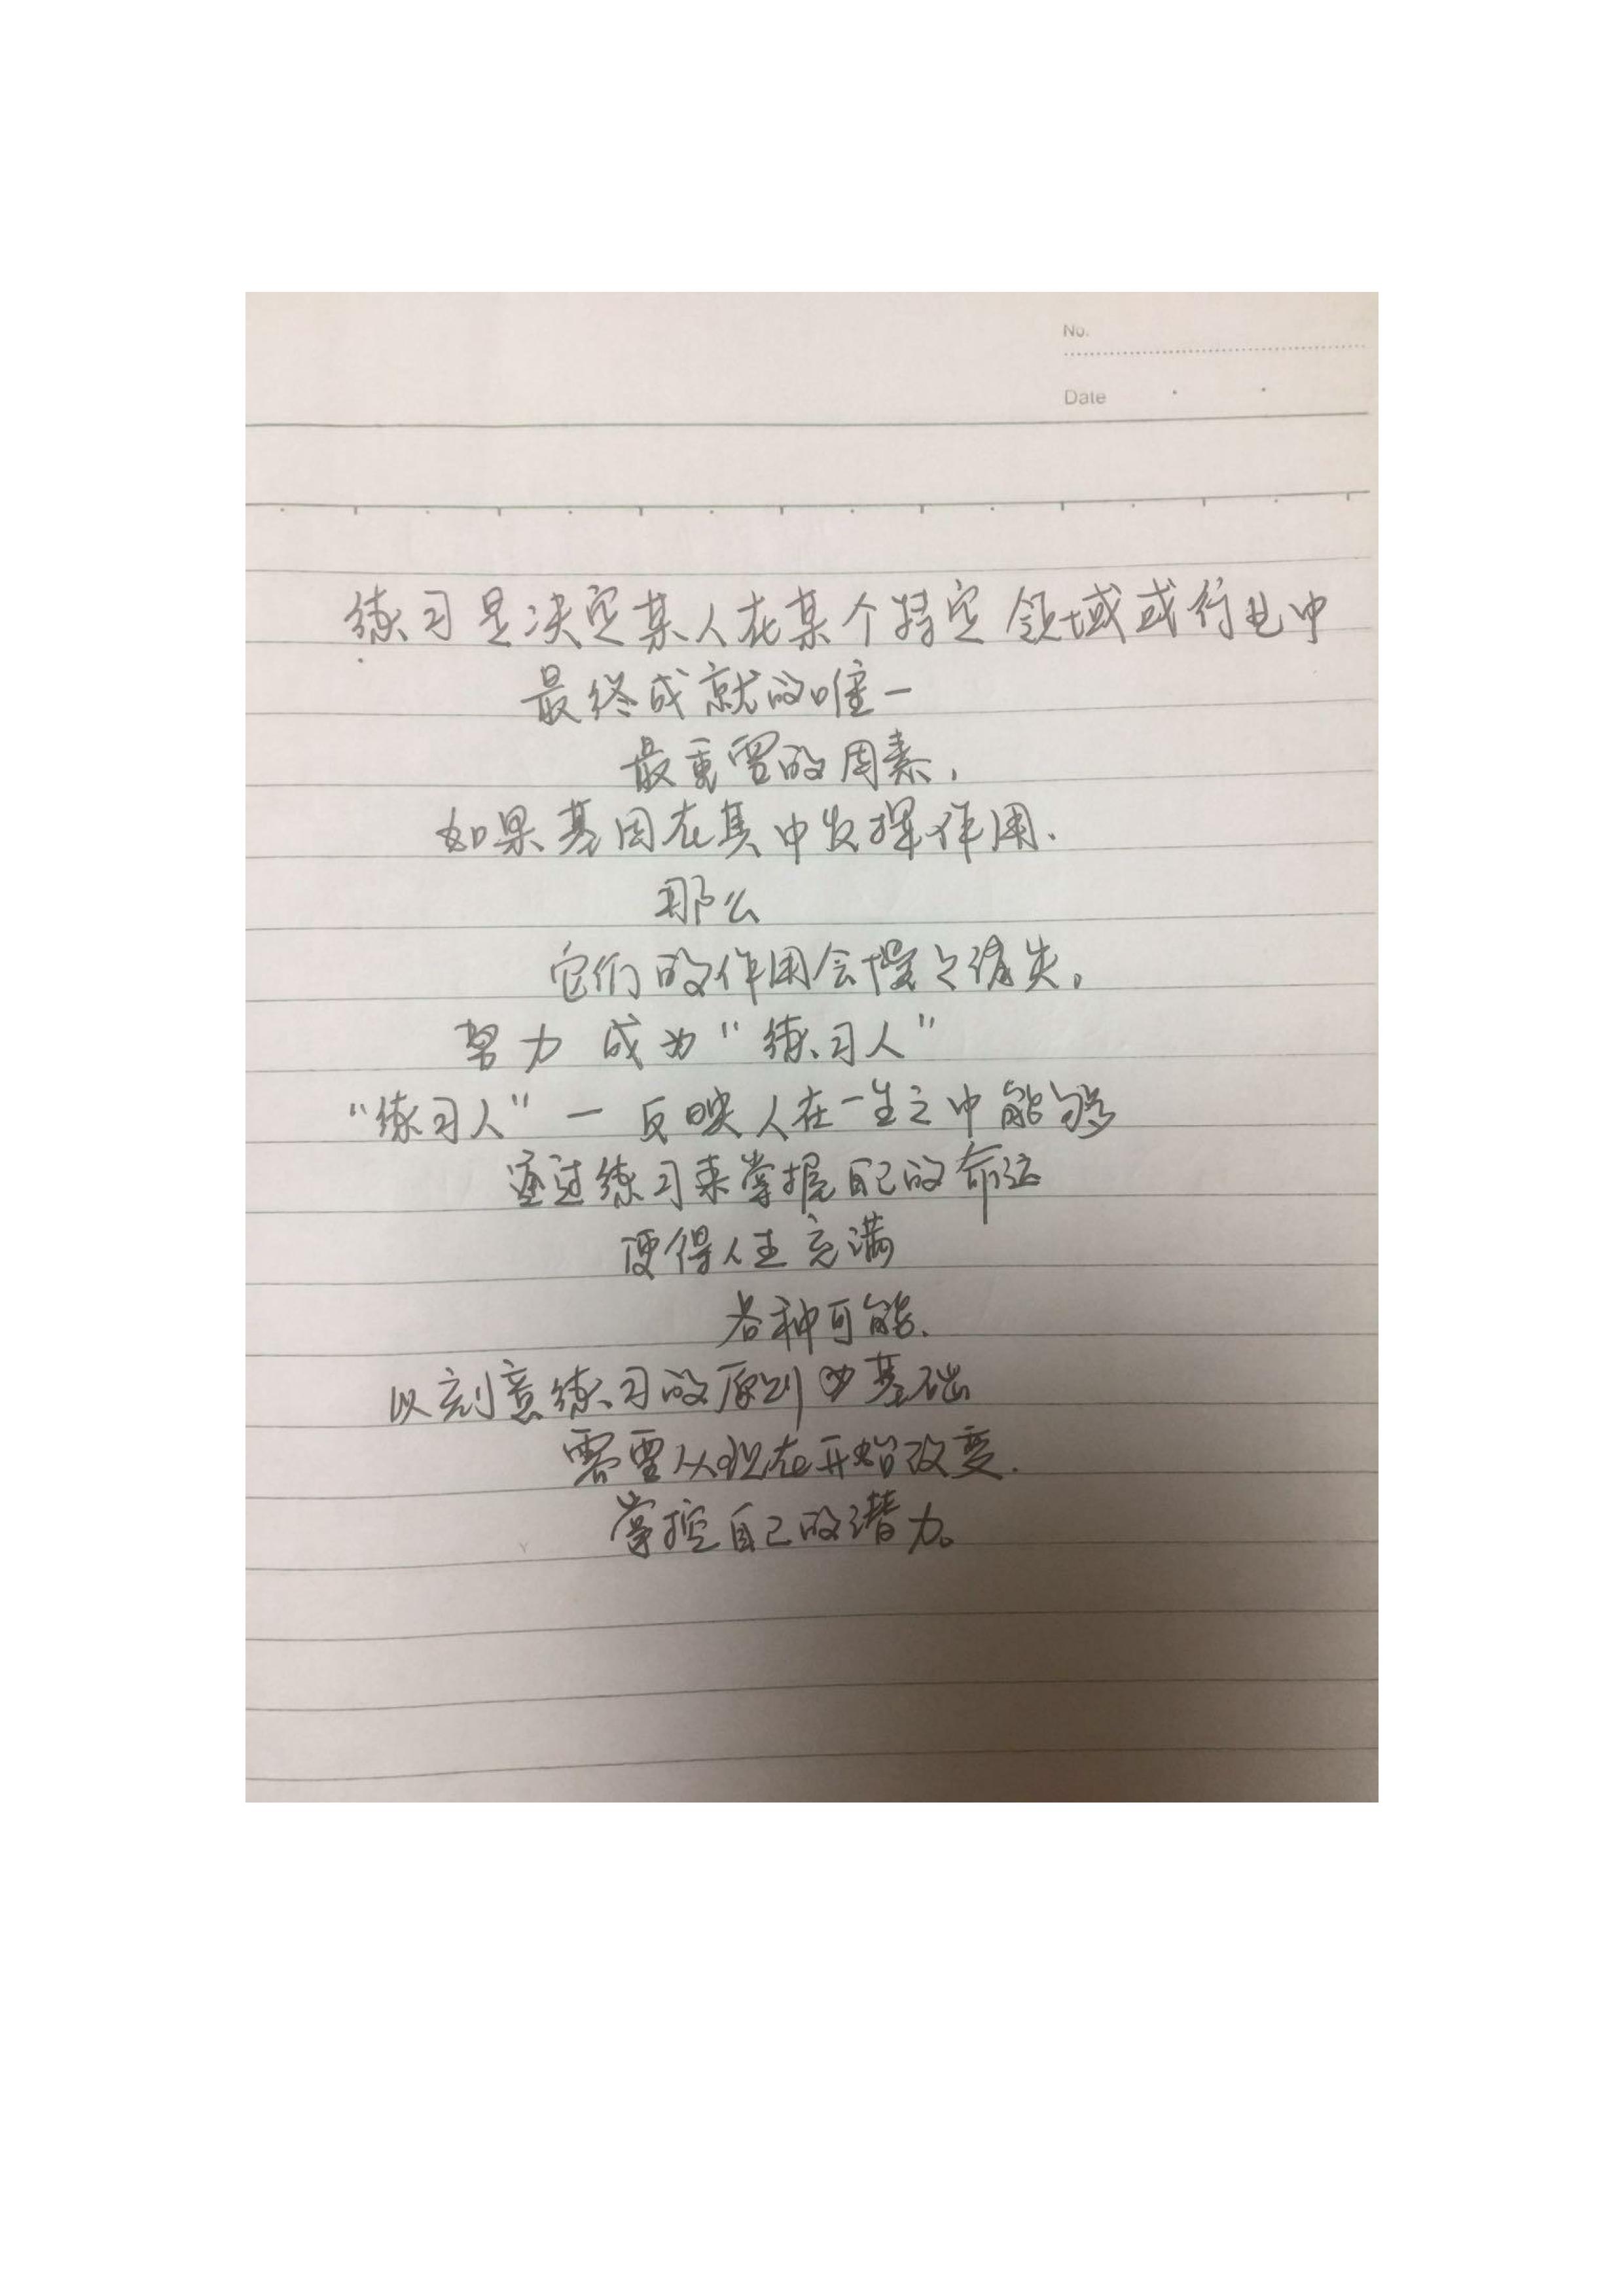 No.
Date
练习是决定某人在某个特定领域或行业中
最终成就的唯一
最重要的因素,
如果基因在其中发挥作用.
那么
它们的作用会慢慢消失,
努力 成为“练习人”
“练习人”一 反映人在一生之中能够
通过练习来掌握自己的命运
使得人生充满
各种可能.
以刻意练习的原则为基础
需要从现在开始改变.
掌控自己的潜力。